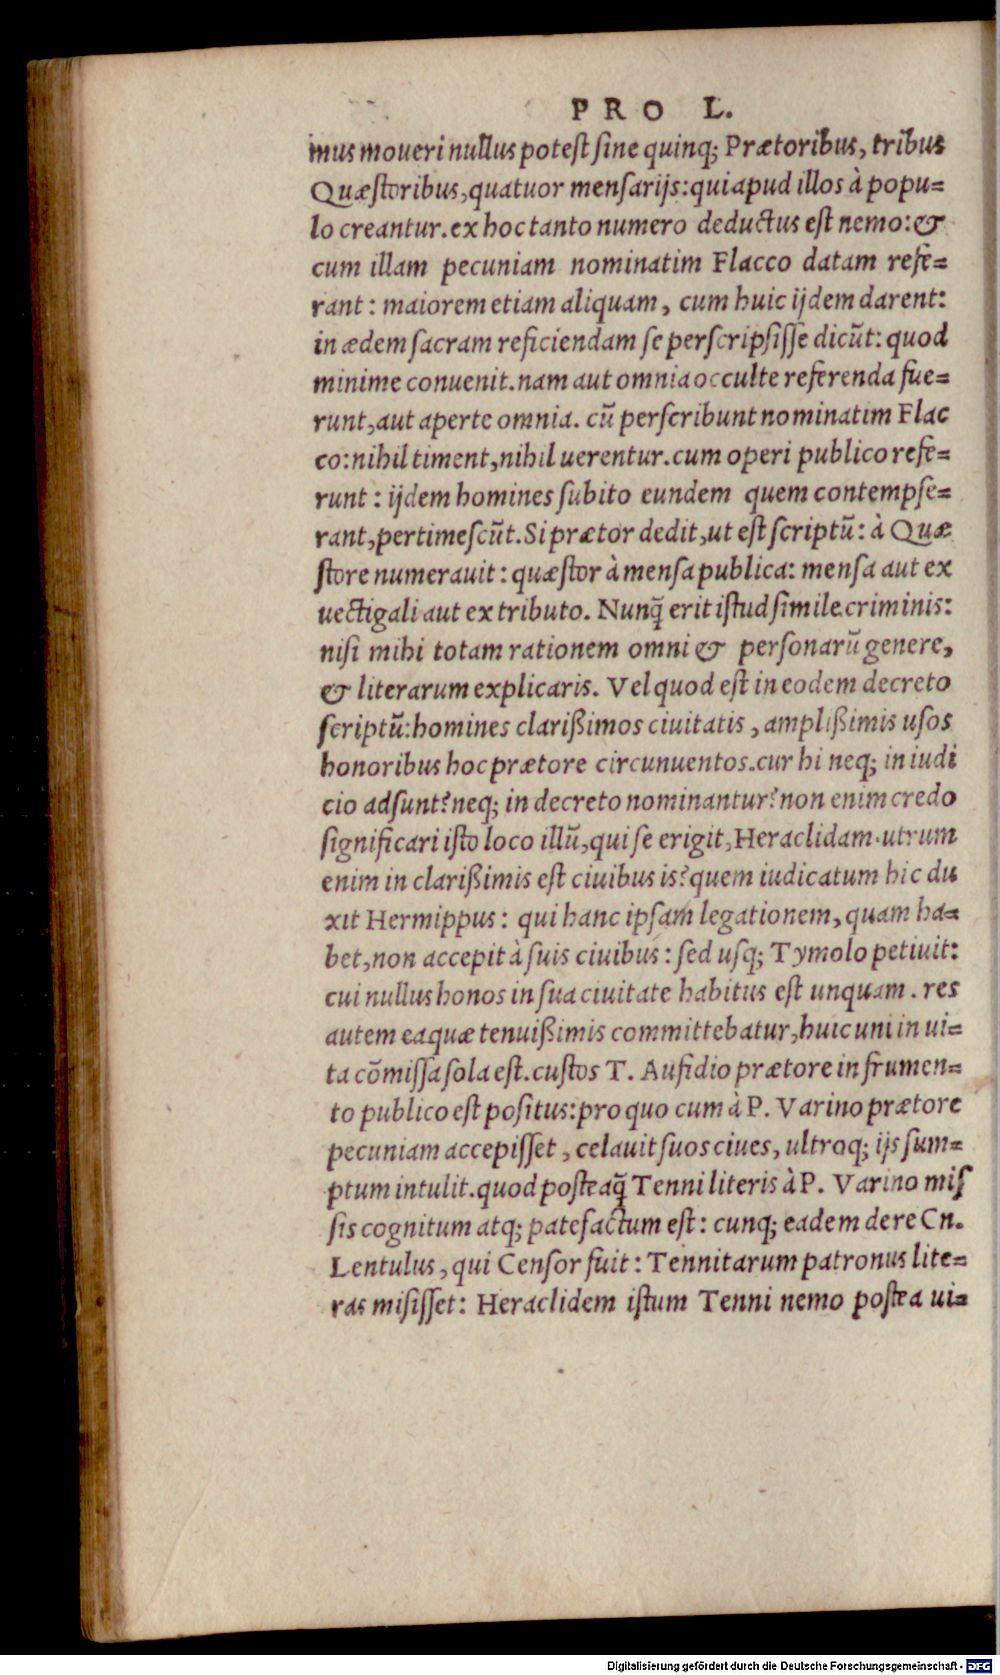 PRO L.
mus moueri nullus potest sine quinq; Prætoribus, tribus
Quæstoribus, quatuor mensarijs: qui apud illos à popu=
lo creantur. ex hoc tanto numero deductus est nemo: &
cum illam pecuniam nominatim Flacco datam refe=
rant: maiorem etiam aliquam, cum huic ijdem darent:
in ædem sacram reficiendam se perscripsisse dicũt: quod
minime conuenit. nam aut omnia occulte referenda fue=
runt, aut aperte omnia. cũ perscribunt nominatim Flac
co: nihil timent, nihil uerentur. cum operi publico refe=
runt: ijdem homines subito eundem quem contempse=
rant, pertimescũt. Si prætor dedit, ut est scriptũ: à Quæ
store numerauit: quæstor à mensa publica: mensa aut ex
uectigali aut ex tributo. Nunq̃ erit istud simile criminis:
nisi mihi totam rationem omni & personarũ genere,
& literarum explicaris. Vel quod est in eodem decreto
scriptũ: homines clarißimos ciuitatis, amplißimis usos
honoribus hoc prætore circunuentos. cur hi neq; in iudi
cio adsunt? neq; in decreto nominantur? non enim credo
significari isto loco illũ, qui se erigit, Heraclidam. utrum
enim in clarißimis est ciuibus is? quem iudicatum hic du
xit Hermippus: qui hanc ipsam legationem, quam ha=
bet, non accepit à suis ciuibus: sed usq; Tymolo petiuit:
cui nullus honos in sua ciuitate habitus est unquam. res
autem ea quæ tenuißimis committebatur, huic uni in ui=
ta cõmissa sola est. custos T. Aufidio prætore in frumen=
to publico est positus: pro quo cum à P. Varino prætore
pecuniam accepisset, celauit suos ciues, ultroq; ijs sum=
ptum intulit. quod posteaq̃ Tenni literis à P. Varino mis
sis cognitum atq; patefactum est: cunq; eadem de re Cn.
Lentulus, qui Censor fuit: Tennitarum patronus lite=
ras misisset: Heraclidem istum Tenni nemo postea ui=
Digitalisierung gefördert durch die Deutsche Forschungsgemeinschaft - DFG